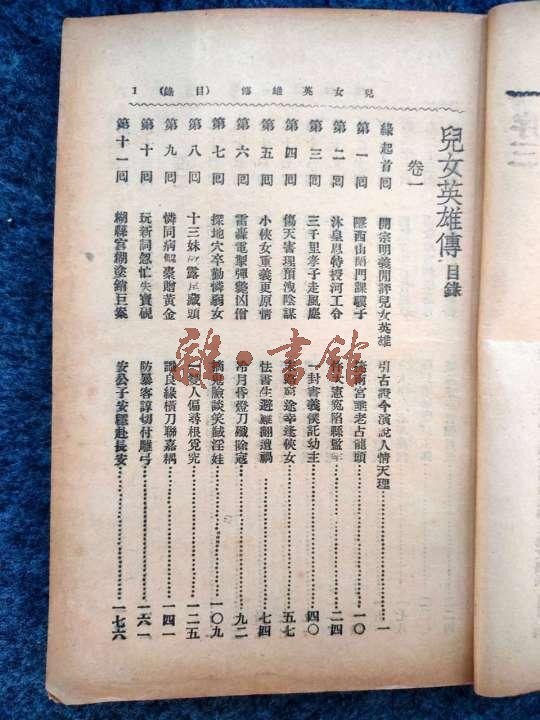 兒女英雄傳 (目錄) 1
兒女英雄傳 目錄
卷一
緣起首回 開宗明義閒評兒女英雄 引古證今演說人情天理…………一
第一回 隱西山閉門課驥子 捷南宮垂老占龍頭…………一〇
第二回 沐皇恩特授河工令 忤大憲冤陷縣監牢…………二四
第三回 三千里孝子走風塵 一封書義僕託幼主…………四〇
第四回 傷天害理預洩陰謀 末路窮途幸逢俠女…………五七
第五回 小俠女重義更原情 怯書生避難翻遭禍…………七四
第六回 雷轟電掣彈斃凶僧 冷月昏燈刀殲餘寇…………九二
第七回 探地穴卒勤憐弱女 摘鬼臉談笑馘淫娃…………一〇九
第八回 十三妹故露尾藏頭 一雙人偏尋根覓究…………一二五
第九回 憐同病解囊贈黃金 識良緣橫刀聯嘉耦…………一四一
第十回 玩新詞忽忙失寶硯 防暴客諄切付雕弓…………一六一
第十一回 糊縣官糊塗銷巨案 安公子安穩赴長安…………一七六
雜·書館